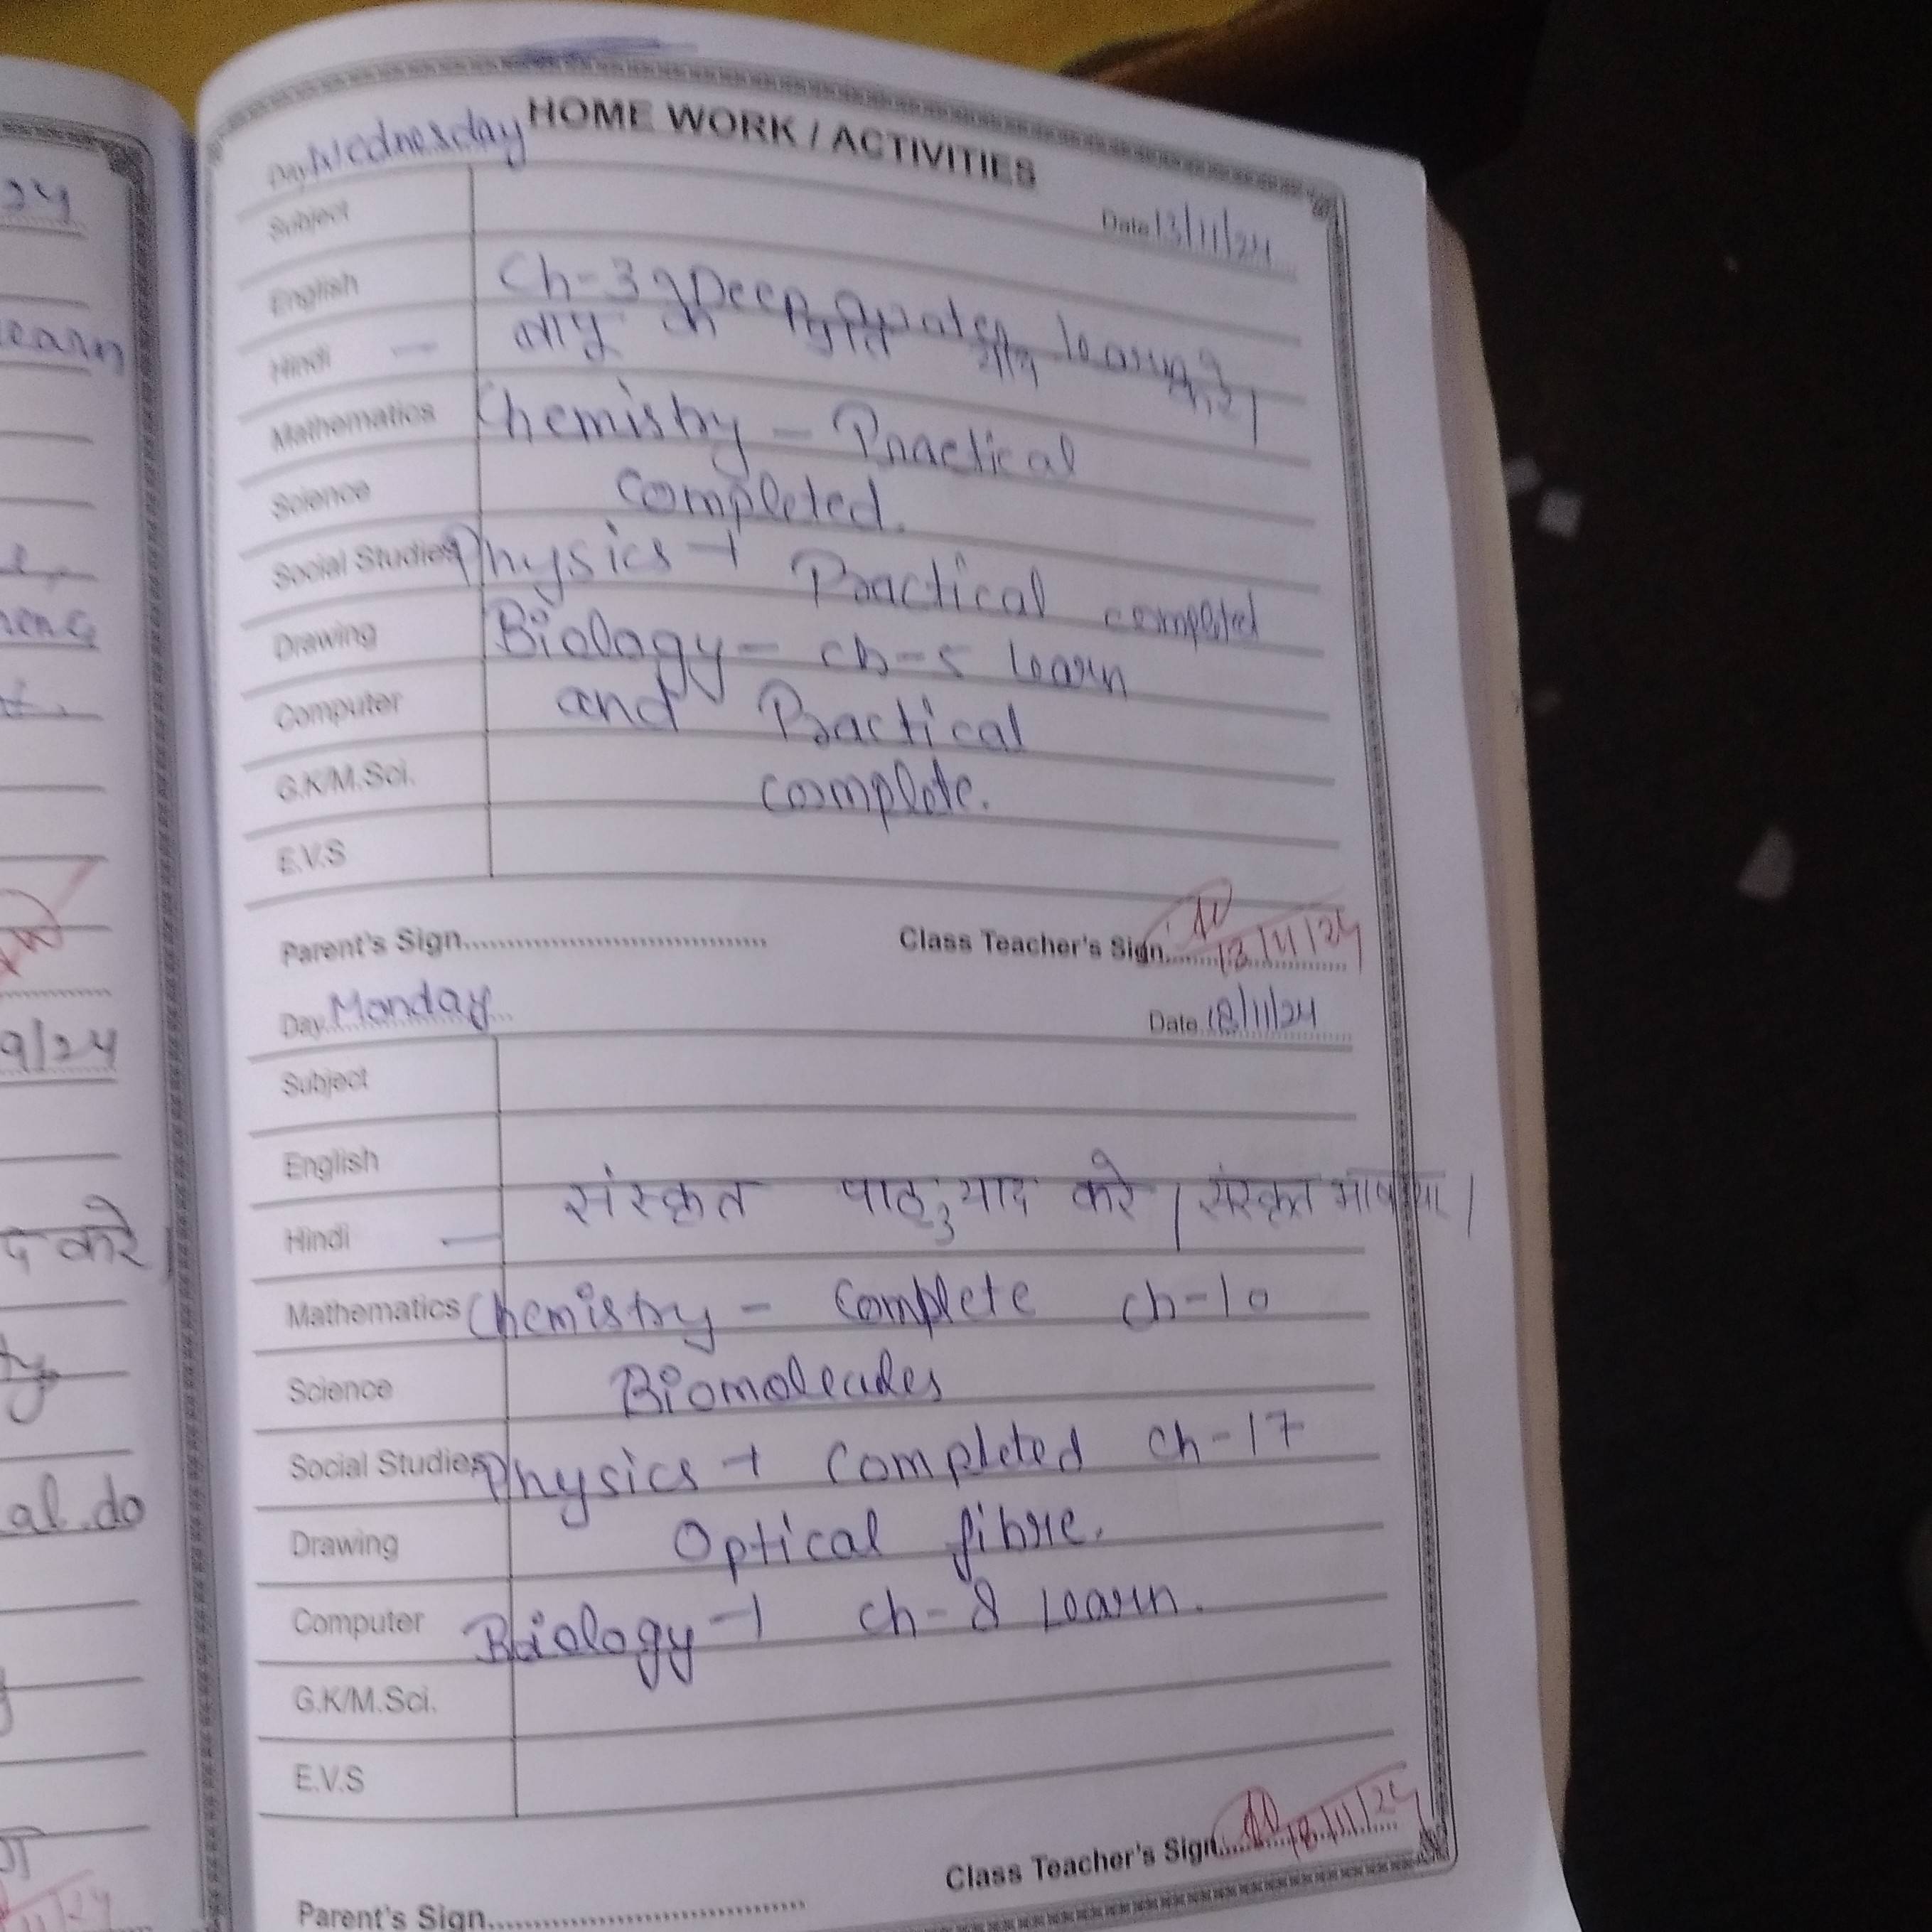 24
earn
9/24
द करे
al.do
HOME WORK / ACTIVITIES
Day Wednesday
Date 13/11/24
Subject
English Ch-3 Deep water learn
Hindi —
Mathematics Chemistry - Practical
Science completed.
Social Studies Physics → Practical completed
Drawing Biology - ch-5 learn
Computer and Practical
G.K/M.Sci. complete.
E.V.S
Parent's Sign.......... Class Teacher's Sign.......... 13/11/24
Day Monday Date 18/11/24
Subject
English
Hindi — संस्कृत पाठ 3 याद करे । संस्कृत
Mathematics Chemistry - Complete ch-10
Science Biomolecules
Social Studies Physics → Completed ch-17
Drawing Optical fibre.
Computer Biology → ch-8 learn.
G.K/M.Sci.
E.V.S
Parent's Sign.......... Class Teacher's Sign.......... 18/11/24